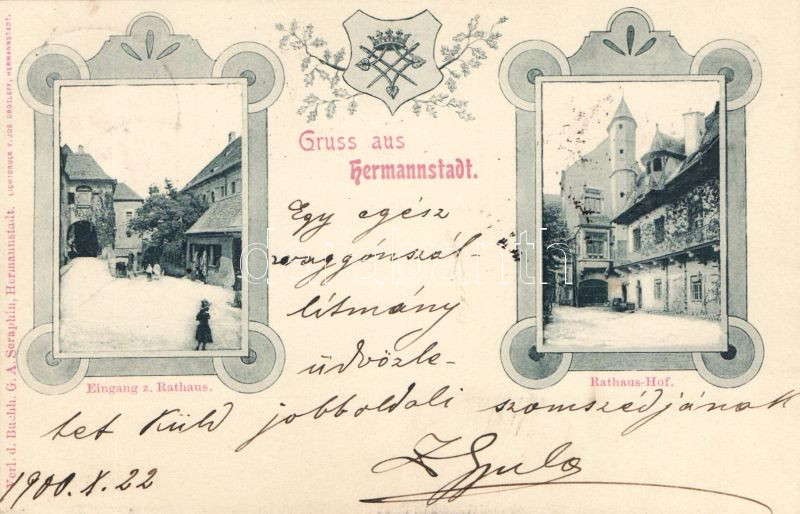 Gruss aus
Hermannstadt.
Egy egész
waggónszál-
lítmány
üdvözle-
tet küld jobboldali szomszédjának
Gyula
1900. X. 22
Eingang z. Rathaus.
Rathaus-Hof.
Verl. d. Buchh. G. A. Seraphin, Hermannstadt.
LICHTDRUCK V. JOS. DROTLEFF, HERMANNSTADT.
darabanth